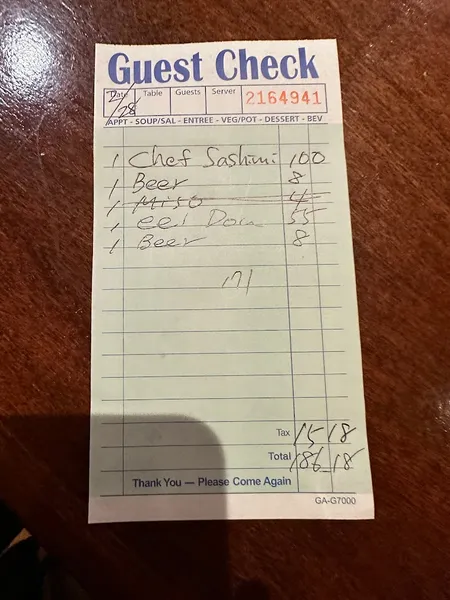 Guest Check
Date Table Guests Server
2/28 2164941
APPT - SOUP/SAL - ENTREE - VEG/POT - DESSERT - BEV
1 Chef Sashimi 100
1 Beer 8
1 Miso 4
1 eel Don 55
1 Beer 8
171
Tax 15 18
Total 186 18
Thank You — Please Come Again
GA-G7000